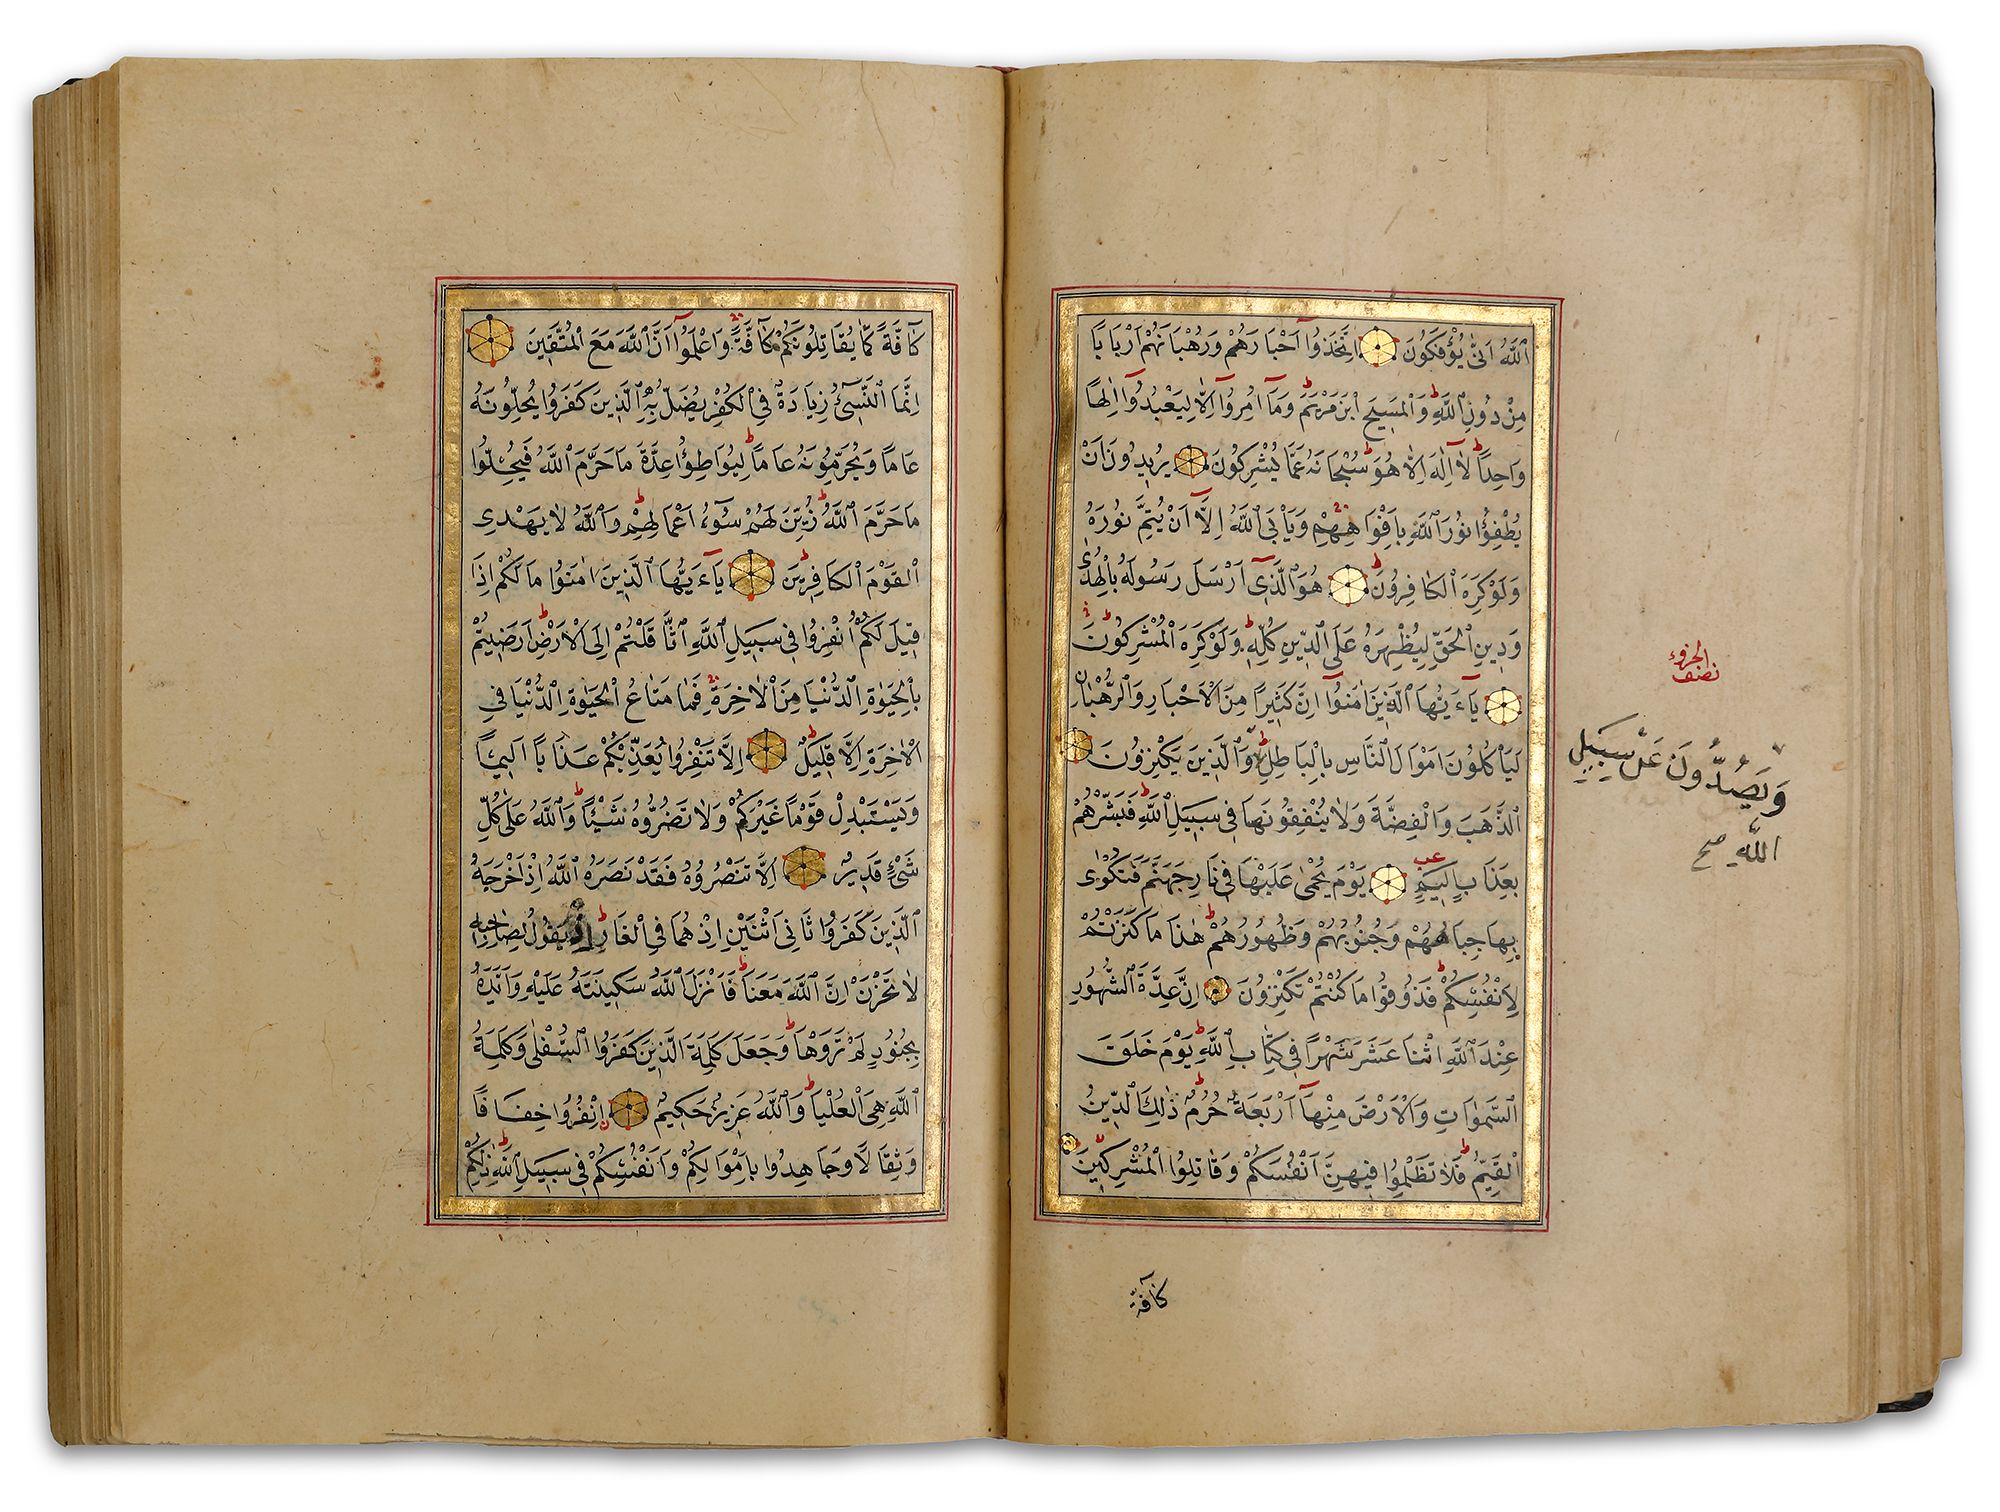 اَللّٰهُ اَنّٰى يُؤْفَكُونَ اِتَّخَذُوٓا اَحْبَارَهُمْ وَرُهْبَانَهُمْ اَرْبَابًا
مِنْ دُونِ اللّٰهِ وَالْمَسِيحَ ابْنَ مَرْيَمَ وَمَآ اُمِرُوٓا اِلَّا لِيَعْبُدُوٓا اِلٰهًا
وَاحِدًا لَآ اِلٰهَ اِلَّا هُوَ سُبْحَانَهُ عَمَّا يُشْرِكُونَ يُرِيدُونَ اَنْ
يُطْفِؤُا نُورَ اللّٰهِ بِاَفْوَاهِهِمْ وَيَاْبَى اللّٰهُ اِلَّآ اَنْ يُتِمَّ نُورَهُ
وَلَوْ كَرِهَ الْكَافِرُونَ هُوَ الَّذِىٓ اَرْسَلَ رَسُولَهُ بِالْهُدٰى
وَدِينِ الْحَقِّ لِيُظْهِرَهُ عَلَى الدِّينِ كُلِّهِ وَلَوْ كَرِهَ الْمُشْرِكُونَ
يَآءَيُّهَا الَّذِينَ اٰمَنُوٓا اِنَّ كَثِيرًا مِنَ الْاَحْبَارِ وَالرُّهْبَانِ
لَيَاْكُلُونَ اَمْوَالَ النَّاسِ بِالْبَاطِلِ وَالَّذِينَ يَكْنِزُونَ
الذَّهَبَ وَالْفِضَّةَ وَلَا يُنْفِقُونَهَا فِى سَبِيلِ اللّٰهِ فَبَشِّرْهُمْ
بِعَذَابٍ اَلِيمٍ عب يَوْمَ يُحْمٰى عَلَيْهَا فِى نَارِ جَهَنَّمَ فَتُكْوٰى
بِهَا جِبَاهُهُمْ وَجُنُوبُهُمْ وَظُهُورُهُمْ هٰذَا مَا كَنَزْتُمْ
لِاَنْفُسِكُمْ فَذُوقُوا مَا كُنْتُمْ تَكْنِزُونَ اِنَّ عِدَّةَ الشُّهُورِ
عِنْدَ اللّٰهِ اثْنَا عَشَرَ شَهْرًا فِى كِتَابِ اللّٰهِ يَوْمَ خَلَقَ
السَّمٰوَاتِ وَالْاَرْضَ مِنْهَآ اَرْبَعَةٌ حُرُمٌ ذٰلِكَ الدِّينُ
الْقَيِّمُ فَلَا تَظْلِمُوا فِيهِنَّ اَنْفُسَكُمْ وَقَاتِلُوا الْمُشْرِكِينَ
نصف الجزؤ
وَيَصُدُّونَ عَنْ سَبِيلِ
اللّٰهِ صح
كآفّة
كَآفَّةً كَمَا يُقَاتِلُونَكُمْ كَآفَّةً وَاعْلَمُوٓا اَنَّ اللّٰهَ مَعَ الْمُتَّقِينَ
اِنَّمَا النَّسِىٓءُ زِيَادَةٌ فِى الْكُفْرِ يُضَلُّ بِهِ الَّذِينَ كَفَرُوا يُحِلُّونَهُ
عَامًا وَيُحَرِّمُونَهُ عَامًا لِيُوَاطِؤُا عِدَّةَ مَا حَرَّمَ اللّٰهُ فَيُحِلُّوا
مَا حَرَّمَ اللّٰهُ زُيِّنَ لَهُمْ سُوٓءُ اَعْمَالِهِمْ وَاللّٰهُ لَا يَهْدِى
الْقَوْمَ الْكَافِرِينَ يَآءَيُّهَا الَّذِينَ اٰمَنُوا مَا لَكُمْ اِذَا
قِيلَ لَكُمُ انْفِرُوا فِى سَبِيلِ اللّٰهِ اثَّاقَلْتُمْ اِلَى الْاَرْضِ اَرَضِيتُمْ
بِالْحَيٰوةِ الدُّنْيَا مِنَ الْاٰخِرَةِ فَمَا مَتَاعُ الْحَيٰوةِ الدُّنْيَا فِى
الْاٰخِرَةِ اِلَّا قَلِيلٌ اِلَّا تَنْفِرُوا يُعَذِّبْكُمْ عَذَابًا اَلِيمًا
وَيَسْتَبْدِلْ قَوْمًا غَيْرَكُمْ وَلَا تَضُرُّوهُ شَيْئًا وَاللّٰهُ عَلٰى كُلِّ
شَىْءٍ قَدِيرٌ اِلَّا تَنْصُرُوهُ فَقَدْ نَصَرَهُ اللّٰهُ اِذْ اَخْرَجَهُ
الَّذِينَ كَفَرُوا ثَانِىَ اثْنَيْنِ اِذْ هُمَا فِى الْغَارِ اِذْ يَقُولُ لِصَاحِبِهِ
لَا تَحْزَنْ اِنَّ اللّٰهَ مَعَنَا فَاَنْزَلَ اللّٰهُ سَكِينَتَهُ عَلَيْهِ وَاَيَّدَهُ
بِجُنُودٍ لَمْ تَرَوْهَا وَجَعَلَ كَلِمَةَ الَّذِينَ كَفَرُوا السُّفْلٰى وَكَلِمَةُ
اللّٰهِ هِىَ الْعُلْيَا وَاللّٰهُ عَزِيزٌ حَكِيمٌ اِنْفِرُوا خِفَافًا
وَثِقَالًا وَجَاهِدُوا بِاَمْوَالِكُمْ وَاَنْفُسِكُمْ فِى سَبِيلِ اللّٰهِ ذٰلِكُمْ